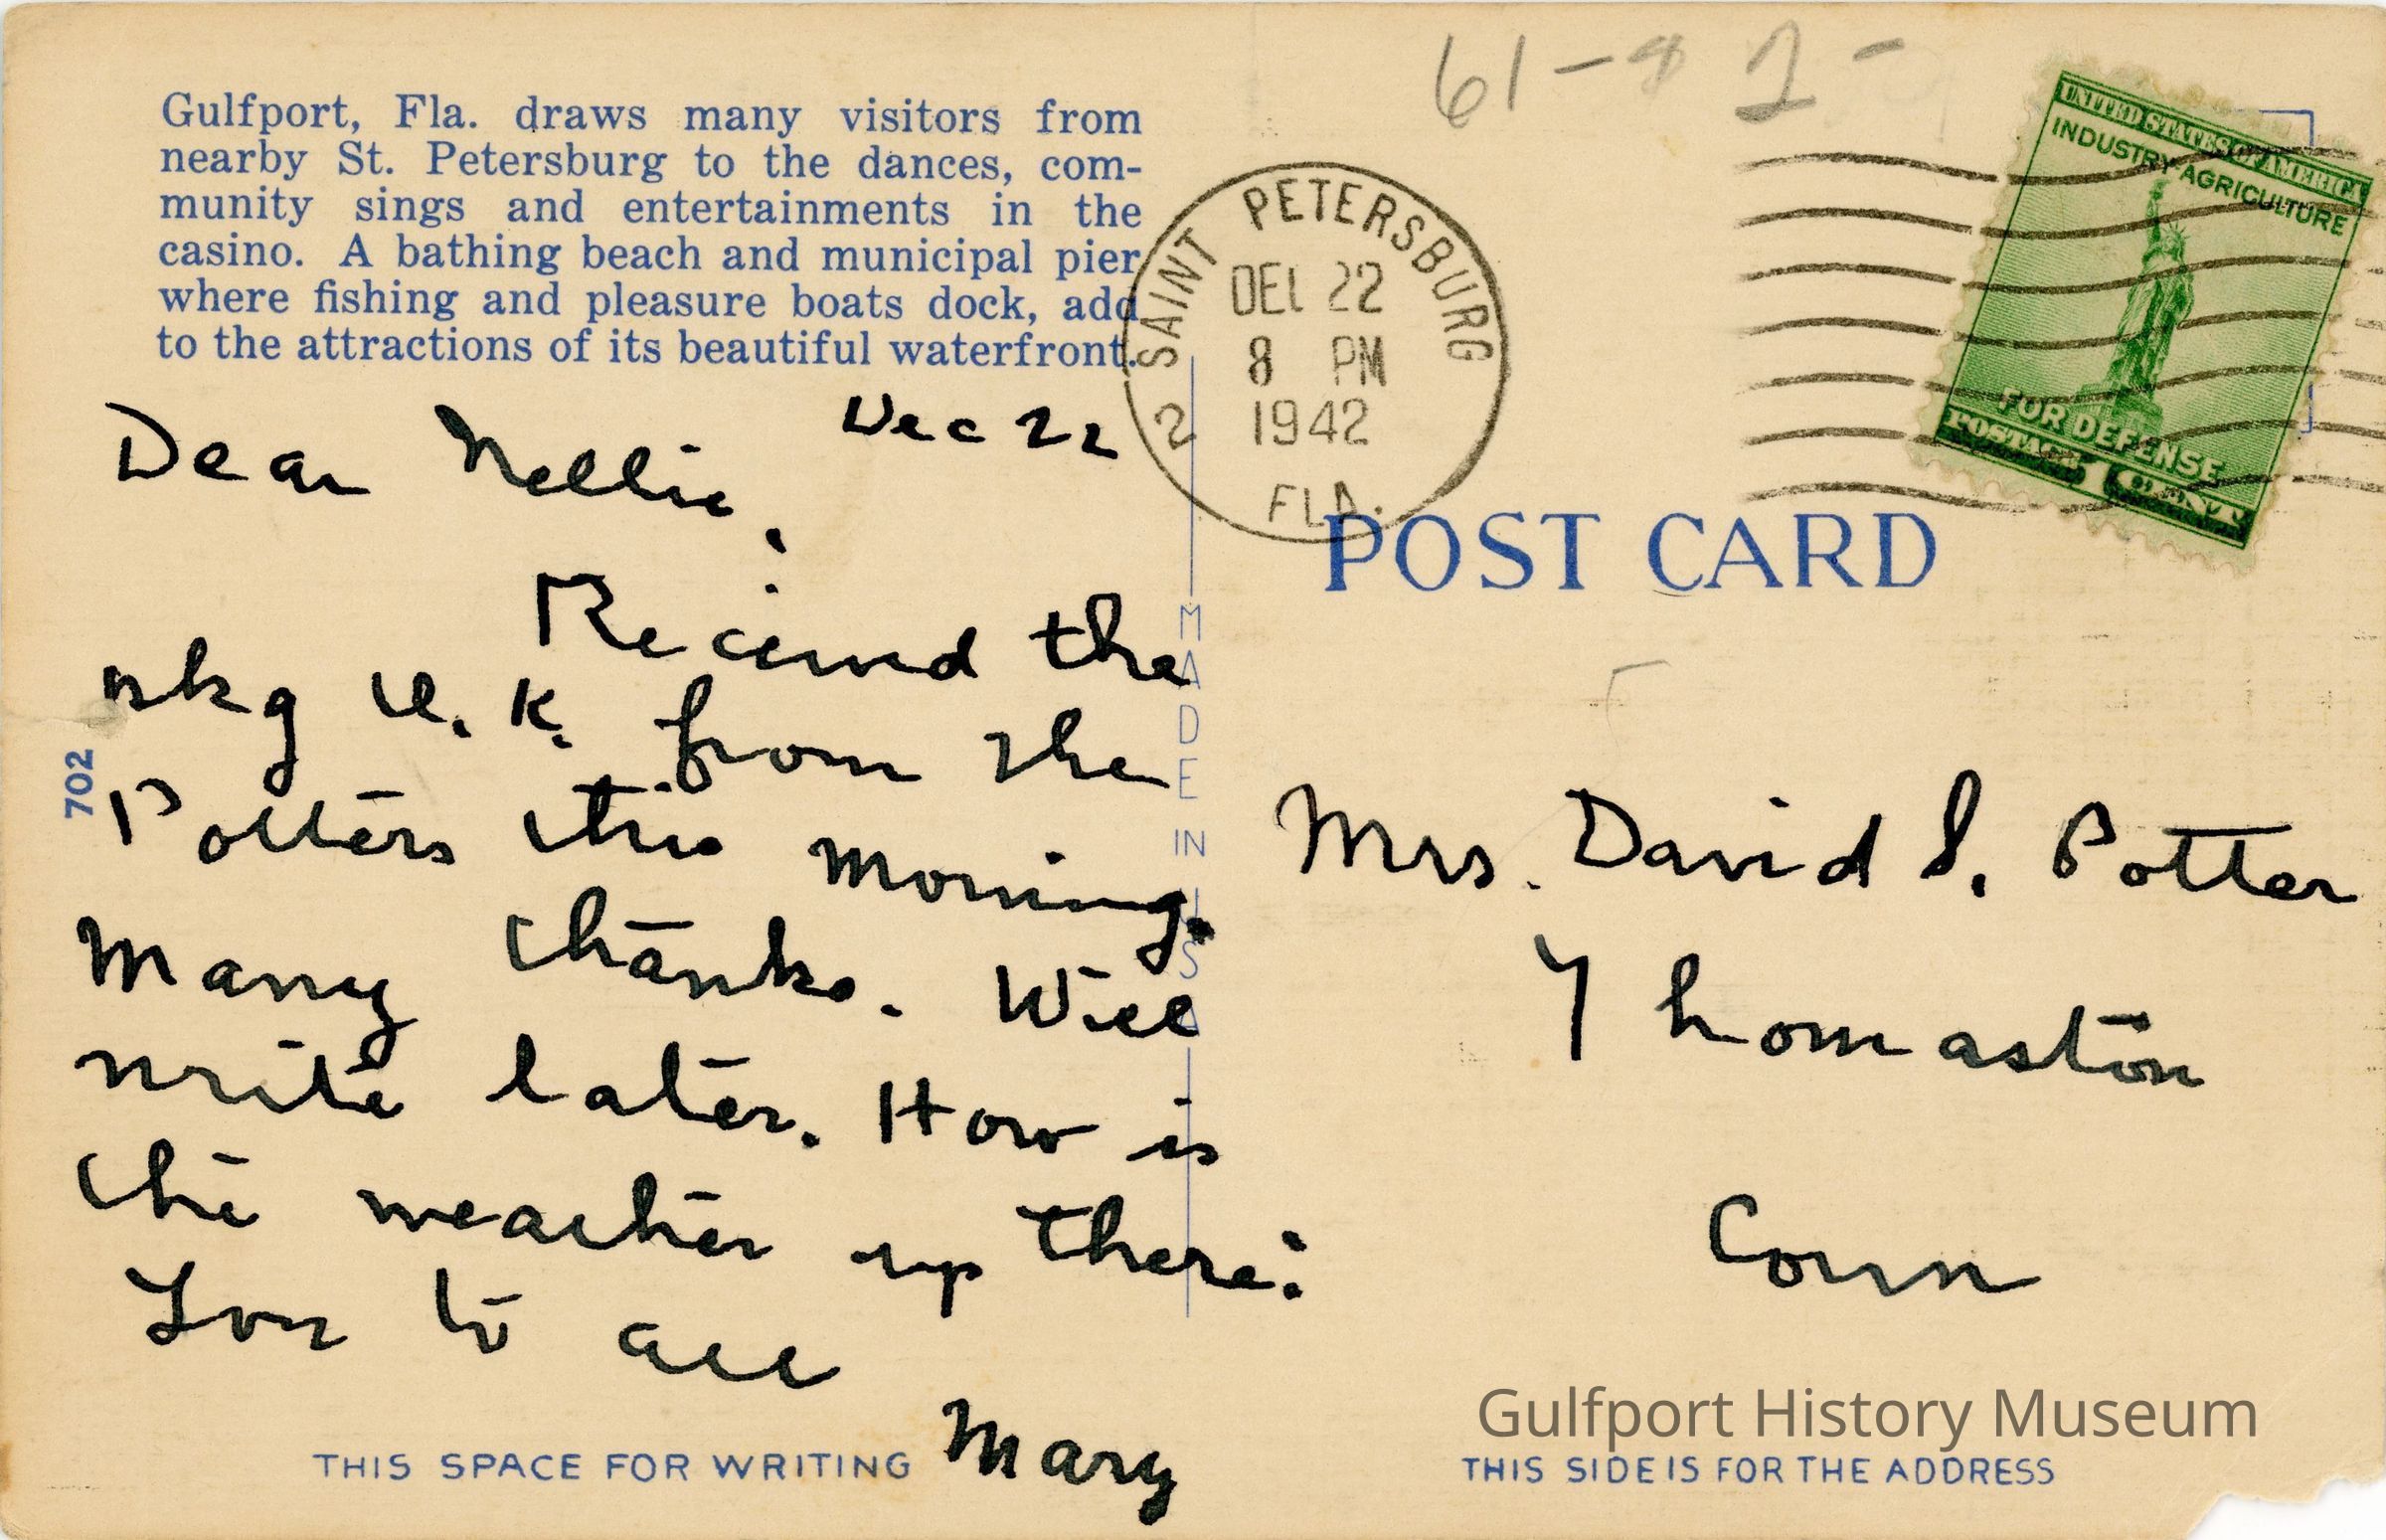 Gulfport, Fla. draws many visitors from
nearby St. Petersburg to the dances, com-
munity sings and entertainments in the
casino. A bathing beach and municipal pier
where fishing and pleasure boats dock, add
to the attractions of its beautiful waterfront.
Dec 22
Dear Nellie,
Received the
pkg O.K. from the
Potters this morning.
Many thanks. Will
write later. How is
the weather up there?
Love to all
Mary
THIS SPACE FOR WRITING
702
MADE IN USA
61-
2 SAINT PETERSBURG
DEC 22
8 PM
1942
FLA.
UNITED STATES OF AMERICA
INDUSTRY-AGRICULTURE
FOR DEFENSE
POSTAGE 1 CENT
POST CARD
Mrs. David S. Potter
Thomaston
Conn
Gulfport History Museum
THIS SIDE IS FOR THE ADDRESS